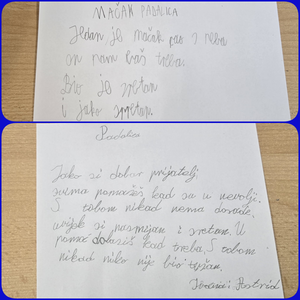 MAČAK PADALICA
Jedan je mačak pao s neba
on nam baš treba.
Bio je sretan
i jako spretan.
Padalica
Jako si dobar prijatelj
svima pomažeš kad su u nevolji.
S tobom nikad nema dosade,
uvijek si nasmijan i sretan. U
pomoć dolaziš kad treba, S tobom
nikad niko nije bio tužan.